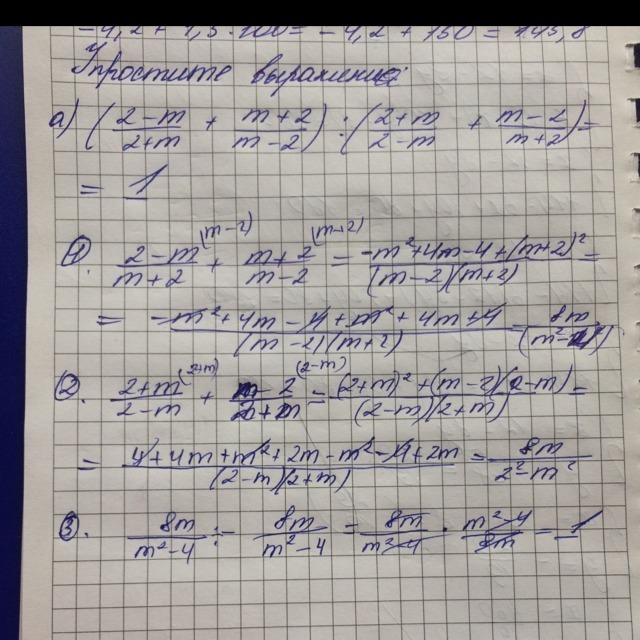 -4,2 + 1,5 · 100 = -4,2 + 150 = 145,8
Упростите выражение:
а) ((2-m)/(2+m) + (m+2)/(m-2)) : ((2+m)/(2-m) + (m-2)/(m+2)) =
= 1
1. (2-m)/(m+2) (m-2) + (m+2)/(m-2) (m+2) = (-m²+4m-4+(m+2)²)/((m-2)(m+2)) =
= (-m²+4m-4+m²+4m+4)/((m-2)(m+2)) = 8m/(m²-4)
2. (2+m)/(2-m) (2+m) + (m-2)/(2+m) (2-m) = ((2+m)²+(m-2)(2-m))/((2-m)(2+m)) =
= (4+4m+m²+2m-m²-4+2m)/((2-m)(2+m)) = 8m/(2²-m²)
3. 8m/(m²-4) ÷ 8m/(m²-4) = 8m/(m²-4) · (m²-4)/8m = 1